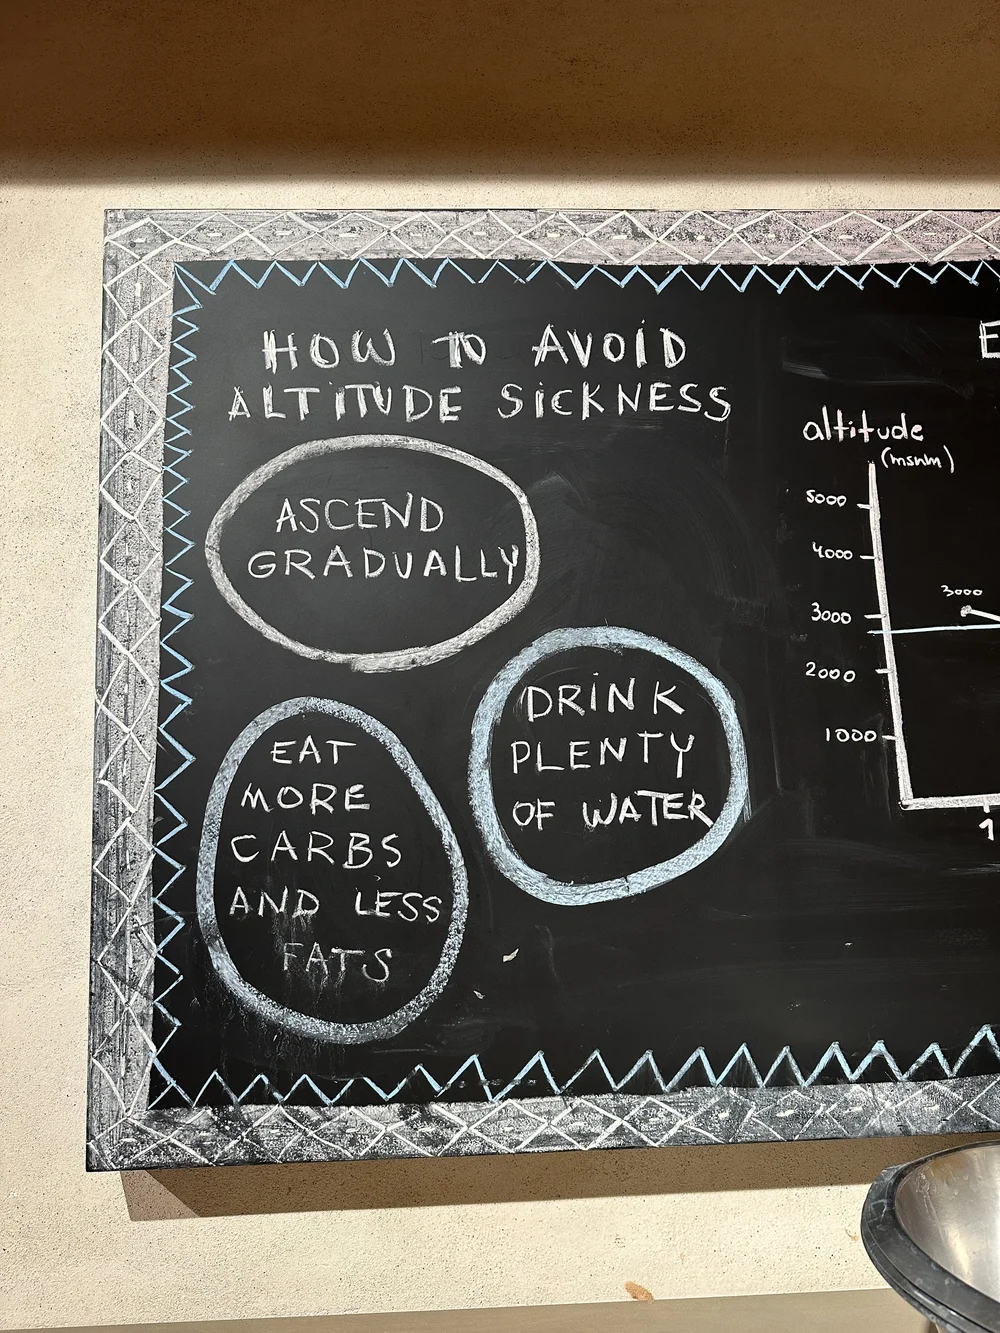 HOW TO AVOID
ALTITUDE SICKNESS
ASCEND
GRADUALLY
DRINK
PLENTY
OF WATER
EAT
MORE
CARBS
AND LESS
FATS
E
altitude
(msnm)
5000
4000
3000
3000
2000
1000
1